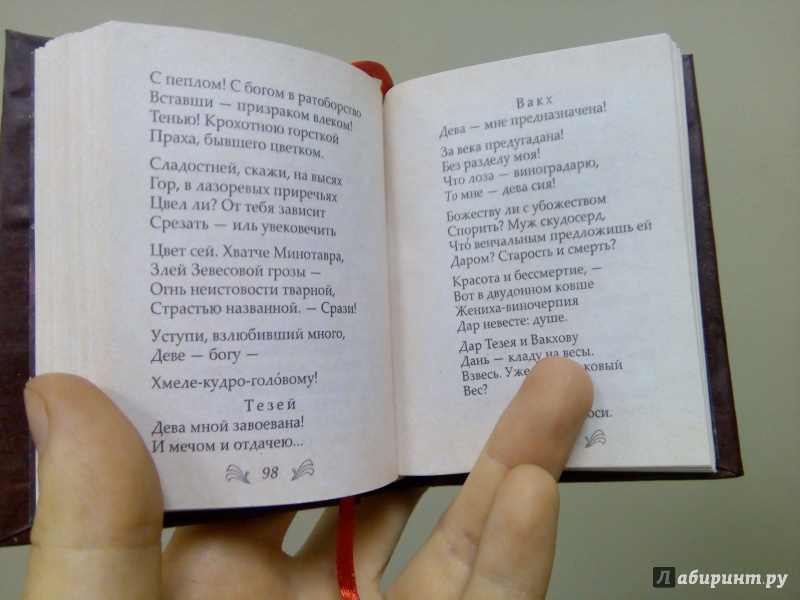 С пеплом! С богом в ратоборство
Вставши — призраком влеком!
Тенью! Крохотною горсткой
Праха, бывшего цветком.
Сладостней, скажи, на высях
Гор, в лазоревых приречьях
Цвел ли? От тебя зависит
Срезать — иль увековечить
Цвет сей. Хватче Минотавра,
Злей Зевесовой грозы —
Огнь неистовости тварной,
Страстью названной. — Срази!
Уступи, взлюбивший много,
Деве — богу —
Хмеле-кудро-голо́вому!
Тезей
Дева мной завоевана!
И мечом и отдачею...
98
Вакх
Дева — мне предназначена!
За века предугадана!
Без разделу моя!
Что лоза — виноградарю,
То мне — дева сия!
Божеству ли с убожеством
Спорить? Муж скудосерд,
Что́ венчальным предложишь ей
Даром? Старость и смерть?
Красота и бессмертие, —
Вот в двудонном ковше
Жениха-виночерпия
Дар невесте: душе.
Дар Тезея и Вакхову
Дань — кладу на весы.
Взвесь.
Вес?
Лабиринт.ру